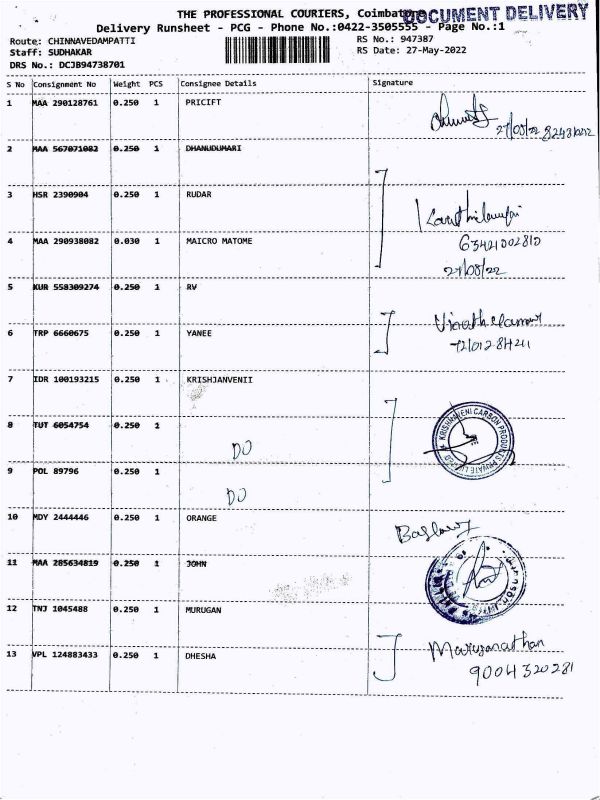 THE PROFESSIONAL COURIERS, Coimbatore
DOCUMENT DELIVERY
Delivery Runsheet - PCG - Phone No.:0422-3505555 - Page No.:1
Route: CHINNAVEDAMPATTI
RS No.: 947387
Staff: SUDHAKAR
RS Date: 27-May-2022
DRS No.: DCJB94738701
S No Consignment No Weight PCS Consignee Details Signature
1 MAA 290128761 0.250 1 PRICIFT
27/05/22
2 MAA 567071082 0.250 1 DHANUDUMARI
3 HSR 2390904 0.250 1 RUDAR
4 MAA 290938082 0.030 1 MAICRO MATOME
63421002810
5 KUR 558309274 0.250 1 RV
6 TRP 6660675 0.250 1 YANEE
7 IDR 100193215 0.250 1 KRISHJANVENII
8 TUT 6054754 0.250 1
DO
KRISHNAVENI CARBON PRODUCTS PRIVATE LIMITED
9 POL 89796 0.250 1
DO
10 MDY 2444446 0.250 1 ORANGE
11 MAA 285634819 0.250 1 JOHN
12 TNJ 1045488 0.250 1 MURUGAN
13 VPL 124883433 0.250 1 DHESHA
9004320281